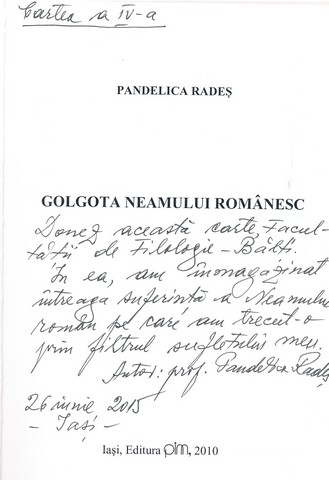 Cartea a IV-a
PANDELICA RADEȘ
GOLGOTA NEAMULUI ROMÂNESC
Donez această carte, Facul-
tății de Filologie – Bălți.
În ea, am înmagazinat
întreaga suferință a Neamului
român pe care am trecut-o
prin filtrul sufletului meu.
Autor: prof. Pandelica Radeș
26 iunie 2015
– Iași –
Iași, Editura pim, 2010